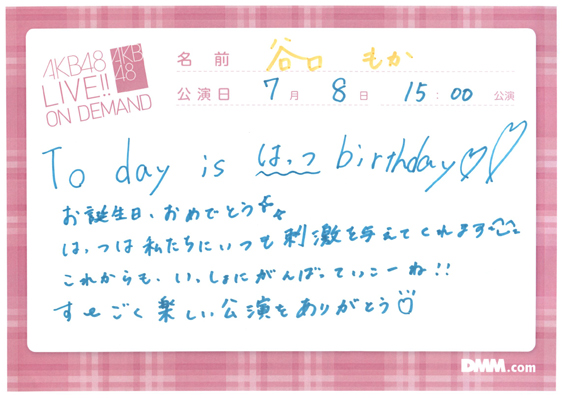 AKB48
LIVE!!
ON DEMAND
AKB
48
名前 谷口 もか
公演日 7月 8日 15:00 公演
To day is はっつ birthday♡♡
お誕生日、おめでとう
はっつは私たちにいつも刺激を与えてくれます
これからも、いっしょにがんばっていこーね!!
すーごく楽しい公演をありがとう
DMM.com